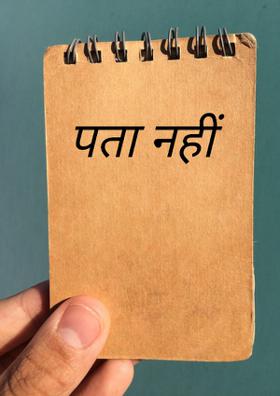 पता नहीं